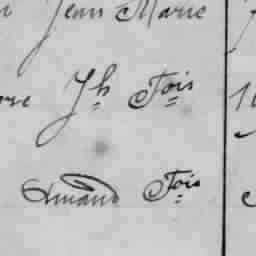 Jean Marie
Jh. Fois
Amand Fois